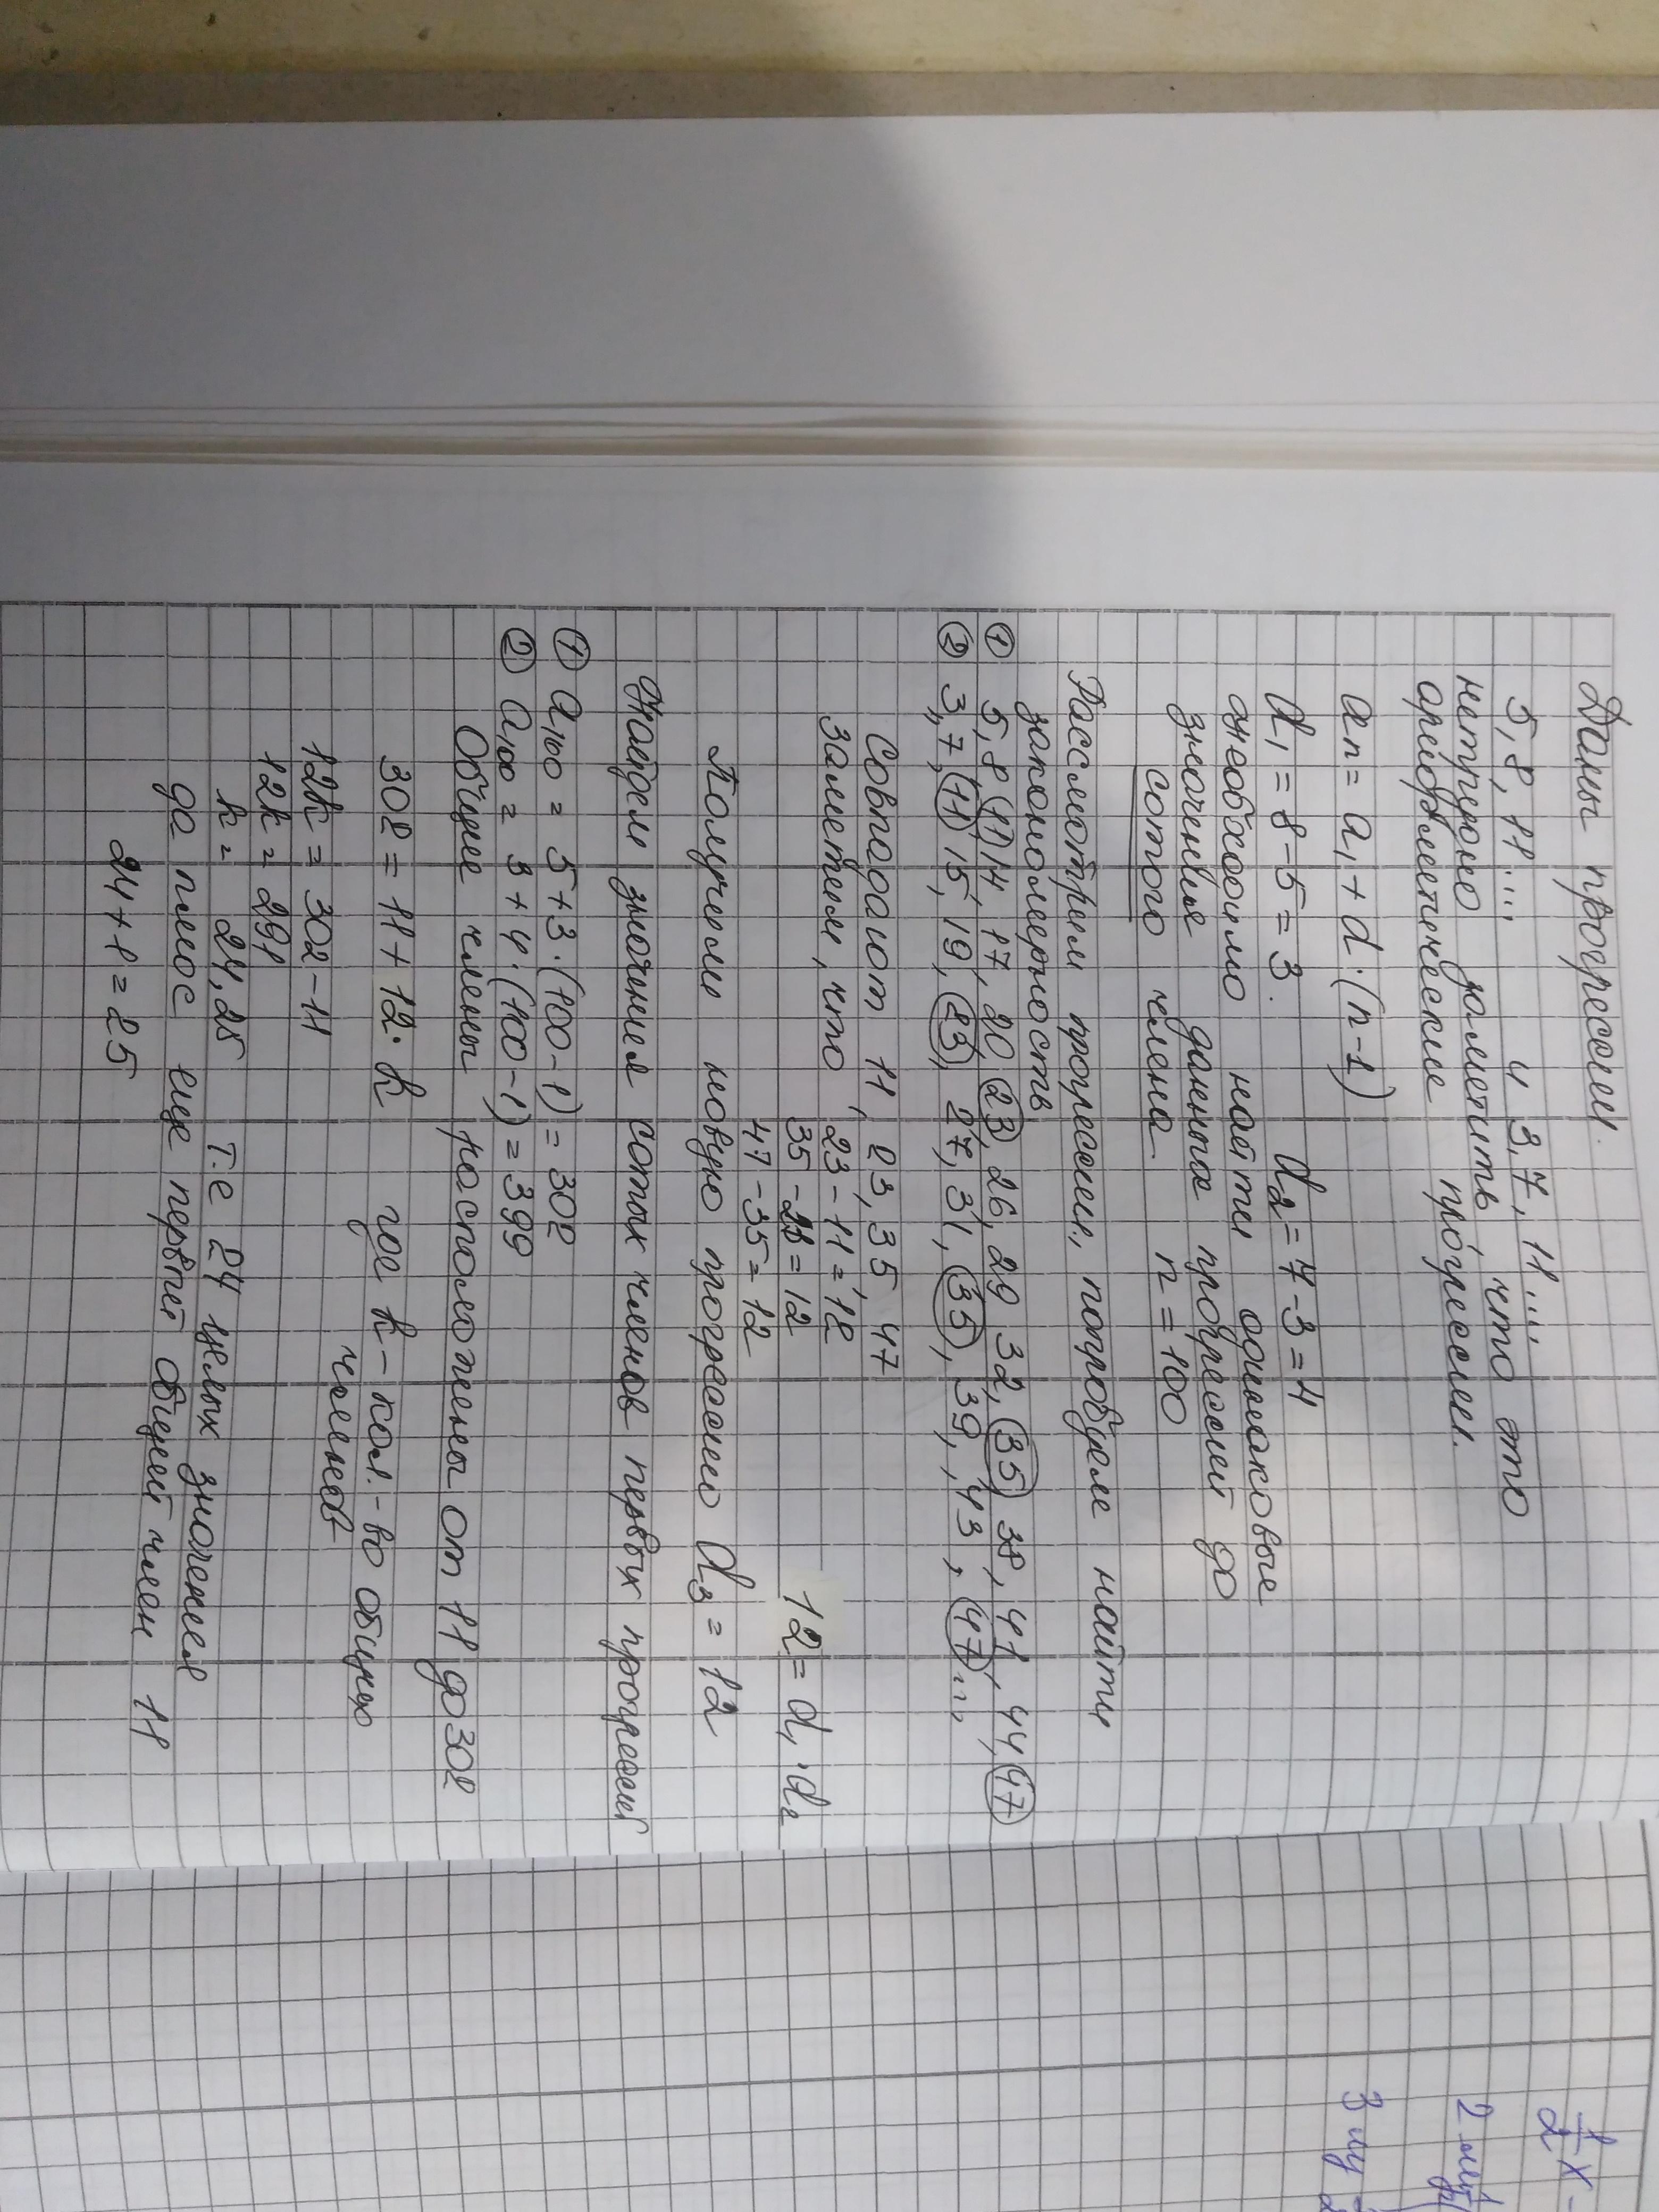 Даны прогрессии.
5, 8, 11 .... и 3, 7, 11 ....
нетрудно заметить, что это
арифметические прогрессии.
an = a1 + d·(n-1)
d1 = 8-5=3. d2 = 7-3=4
необходимо найти одинаковые
значения данных прогрессий до
сотого члена n = 100
Рассмотрим прогрессии, попробуем найти
закономерность
① 5, 8, 11, 14, 17, 20, 23, 26, 29 32, 35, 38, 41, 44, 47
② 3, 7, 11, 15, 19, 23, 27, 31, 35, 39, 43, 47...
Совпадают 11, 23, 35, 47
Заметим, что 23-11=12
35-23=12 12 = d1·d2
47-35=12
Получим новую прогрессию d3 = 12
Найдем значение сотых членов первых прогрессий
① a100 = 5+3·(100-1) = 302
② a100 = 3+4·(100-1) = 399
Общие члены расположены от 11 до 302
302 = 11 + 12·k где k - кол.-во общих
членов
12k = 302-11
12k = 291
k = 24,25 т.е 24 целых значения
да плюс еще первый общий член 11
24+1=25
1/2 x -
2
3